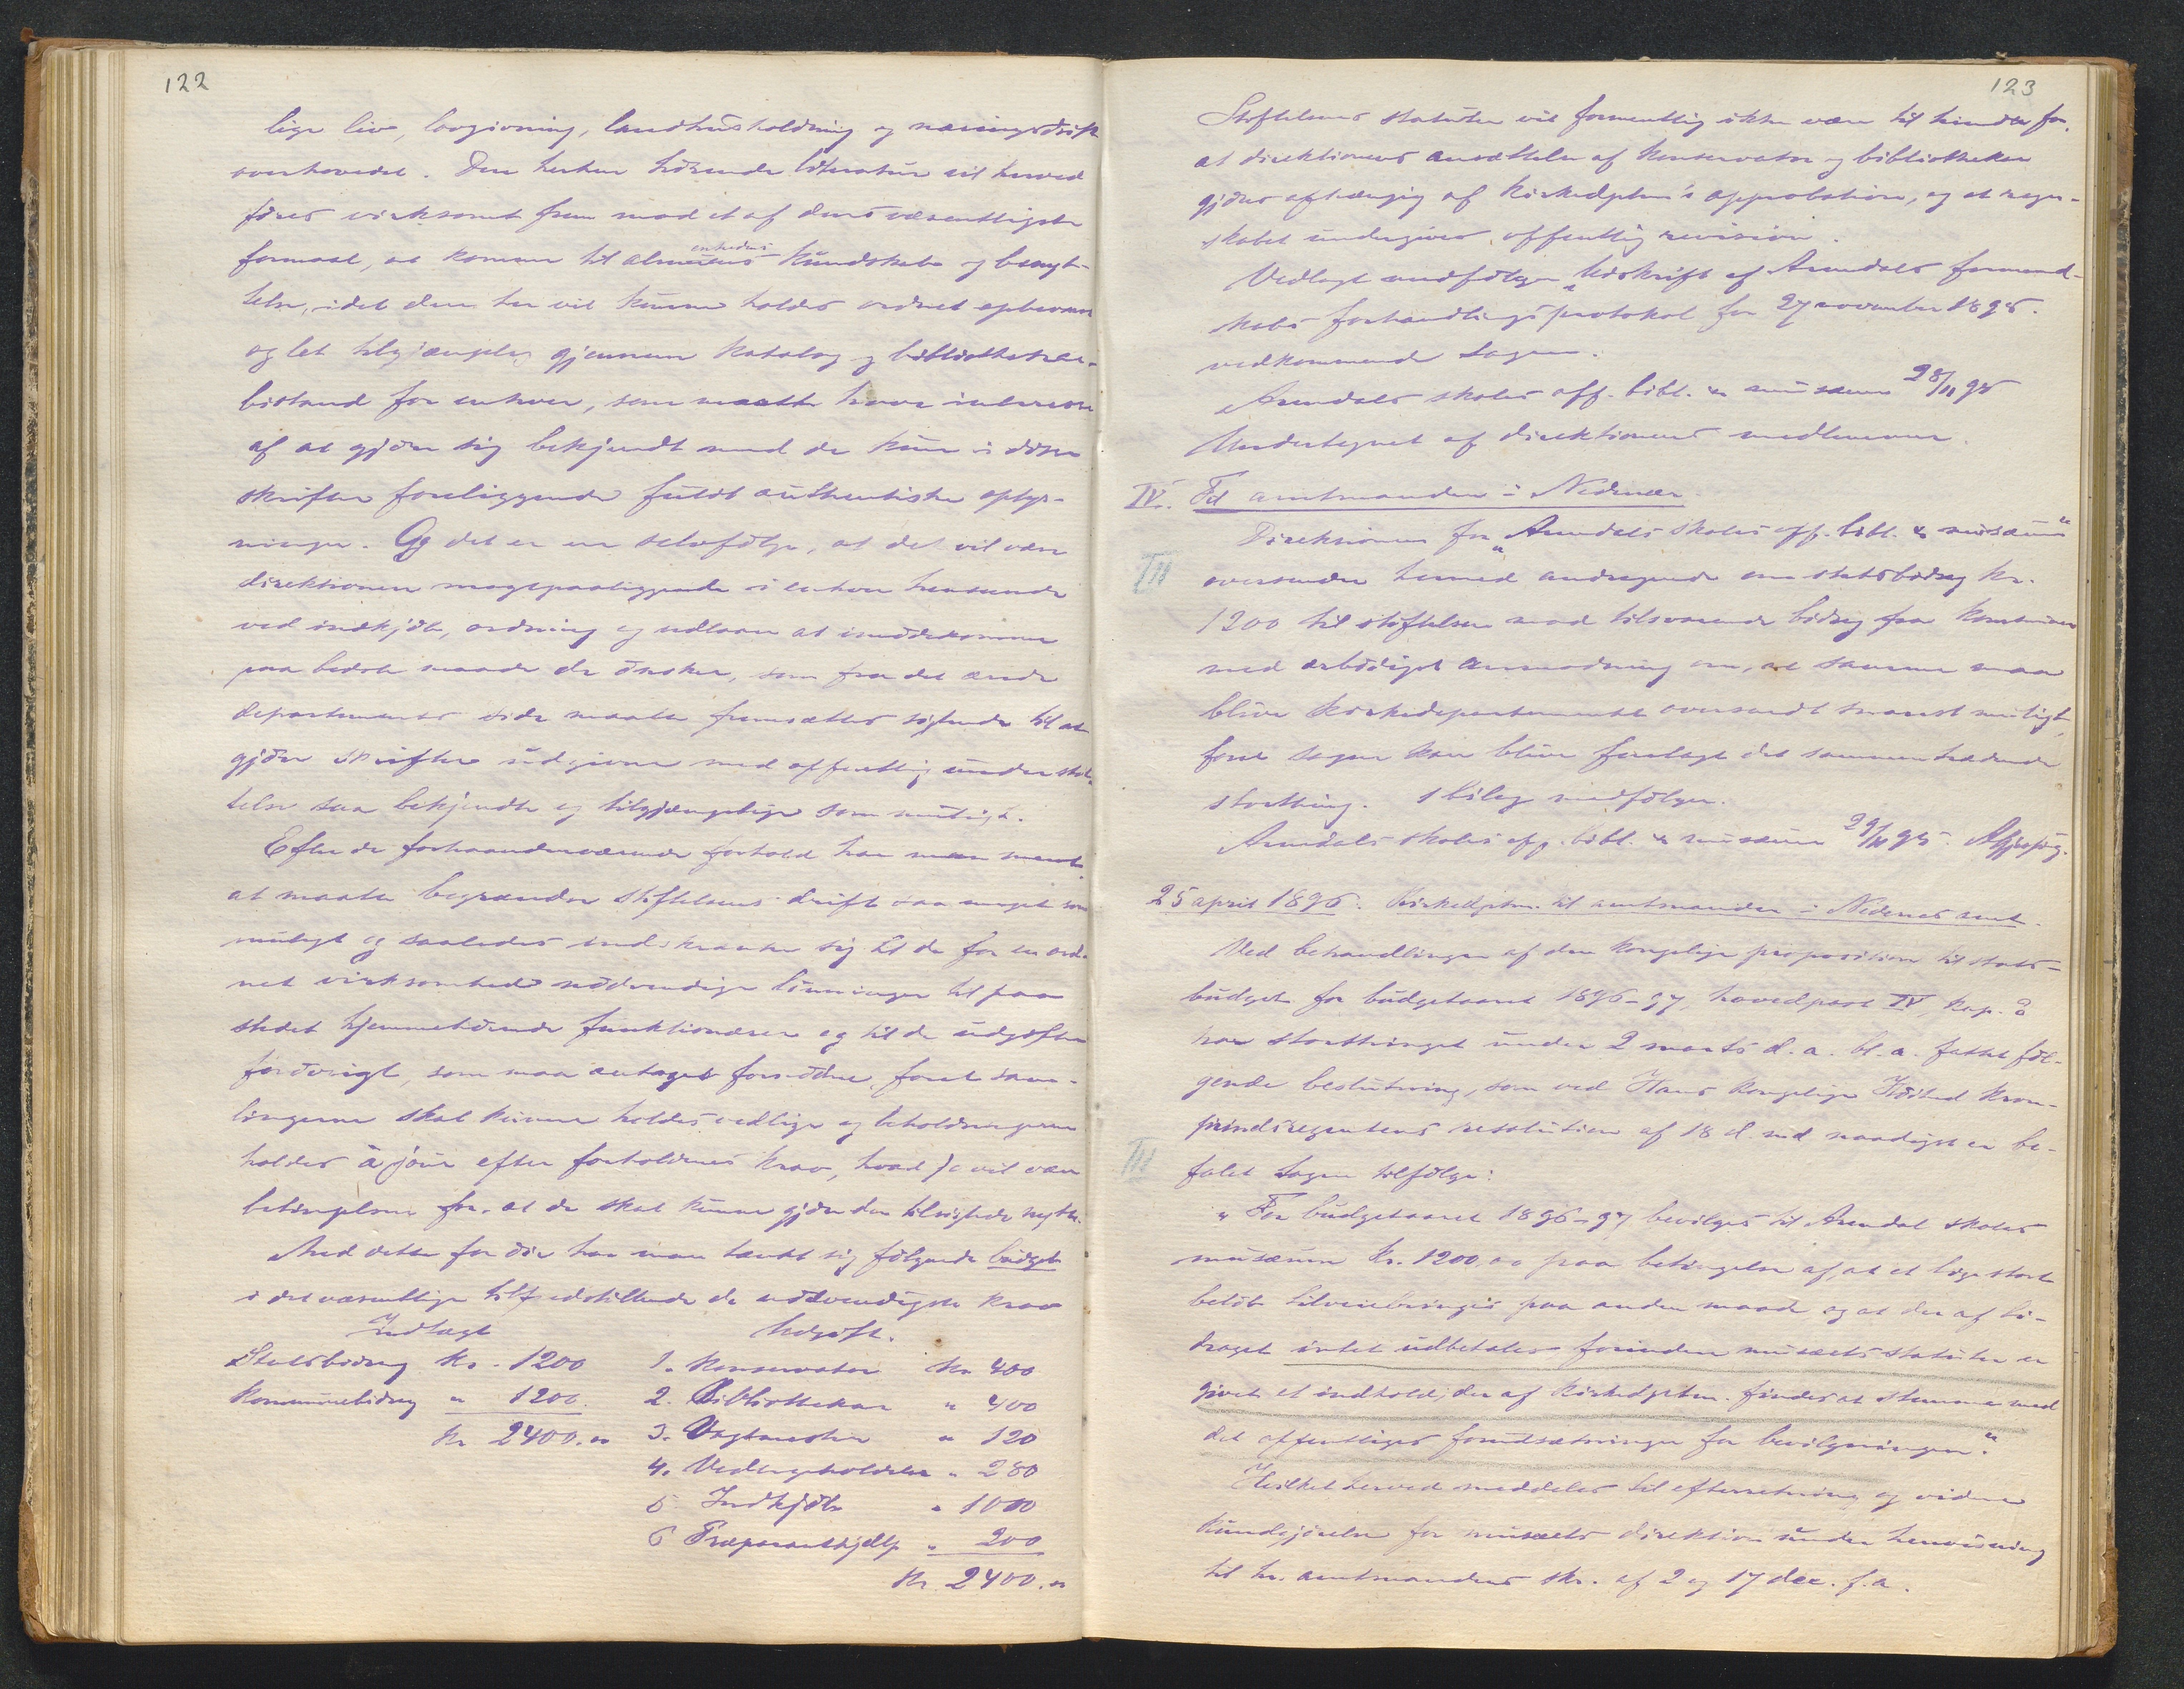 122
lige liv, lovgivning, landhusholdning og næringsdrift
overhovedet. Den herhen hörende literatur vil herved
föres virksomt frem mod et af dens væsentligste
formaal, at komme til almenhedens kundskab og benyt-
telse, idet den her vil kunne holdes ordnet opbevaret
og let tilgjængelig gjennem katalog og bibliothekar-
bistand for enhver, som maatte have interesse
af at gjöre sig bekjendt med de kun i disse
skrifter foreliggende fuldt authentiske oplys-
ninger. Og det er en selvfölge, at det vil være
direktionen magtpaaliggende i enhver henseende
ved indkjöb, ordning og udlaan at imödekomme
paa bedste maade de önsker, som fra det ærede
departements side maatte fremsættes sigtende til at
gjöre skrifter udgivne med offentlig understöt-
telse saa bekjendte og tilgjængelige som muligt.
Efter de forhaandenværende forhold har man ment
at maatte begrænse stiftelsens drift saa meget som
muligt og saaledes indskrænke sig til de for en ord-
net virksomhed nödvendige lönninger til paa
stedet hjemmehörende funktionærer og til de udgifter
forövrigt, som maa antages fornödne, forat sam-
lingerne skal kunne holdes vedlige og beholdningerne
holdes à jour efter forholdenes krav, hvad jo vil være
betingelsen for, at de skal kunne gjöre den tilsigtede nytte.
Med dette for öie har man tænkt sig fölgende budget
i det væsentlige tilfredstillende de nödvendigste krav
Indtægt Udgift.
Statsbidrag Kr. 1200 1. Konservator Kr 400
Kommunebidrag " 1200. 2. Bibliothekar " 400
Kr 2400.00 3. Vagtmester " 120
4. Vedligeholdelse " 280
5. Indkjöb " 1000
6 Præparanthjælp " 200
Kr. 2400.00
123
Stiftelsens statuter vil formentlig ikke være til hinder for,
at direktionens ansættelse af konservator og bibliothekar
gjöres afhængig af Kirkedptm's approbation, og at regn-
skabet undergives offentlig revision.
Vedlagt medfölger udskrift af Arendals formand-
skabs forhandlingsprotokol for 27 november 1895.
vedkommende sagen.
Arendals skoles off. bibl. & musæum 28/11 95
Undertegnet af direktionens medlemmer.
IV. Til amtmanden i Nedenæs.
Direktionen for "Arendals skoles off. bibl. & musæum"
oversender hermed andragende om statsbidrag kr.
1200 til stiftelsen mod tilsvarende bidrag fra kommunen
med ærbödigst anmodning om, at samme maa
blive Kirkedepartementet oversendt snarest muligt,
forat sagen kan blive forelagt det sammentrædende
storthing. 1 bilag medfölger.
Arendals skoles off. bibl. & musæum 29/11 95.
25 april 1896. Kirkedptm. til amtmanden i Nedenes amt.
Ved behandlingen af den kongelige proposition til stats-
budget for budgetaaret 1896-97, hovedpost IV, kap. 2
har storthinget under 2 marts d. a. bl. a. fattet föl-
gende beslutning, som ved Hans Kongelige Höihed Kron-
prindsregentens resolution af 18 d. md naadigst er be-
falet tagen tilfölge:
"For budgetaaret 1896-97 bevilges til Arendal skoles
musæum kr. 1200,00 paa betingelse af, at et lige stort
belöb tilveiebringes paa anden maade og at der af bi-
draget intet udbetales forinden musæets statuter er
givet et indhold, der af Kirkedptm. findes at stemme med
det offentliges forudsætninger for bevilgningen."
Hvilket herved meddeles til efterretning og videre
kundgjörelse for musæets direktion under henvisning
til hr. amtmandens skr. af 2 og 17 dec. f. a.